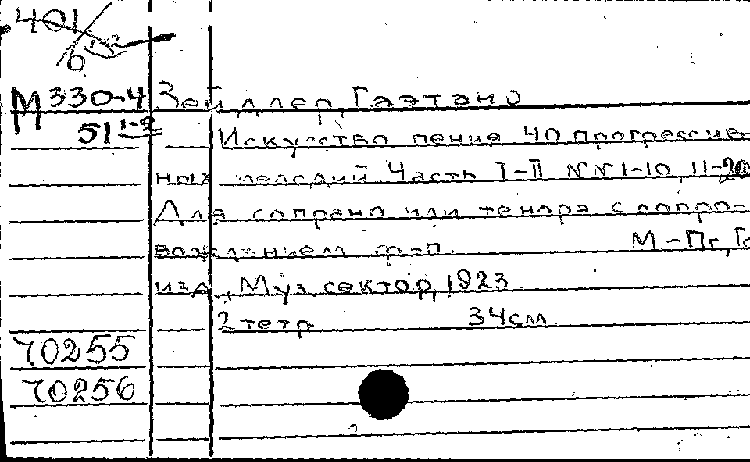 401
6
М 330-4 Зейдлер, Гаэтано
51 1-2 Искусство пения 40 прогрессив-
ных мелодий Часть I-II NN 1-10, 11-20
Для сопрано или тенора с сопро-
вождением ф-п. М-Пг, Го
изд., Муз. сектор, 1923
2 тетр 34 см
70255
70256